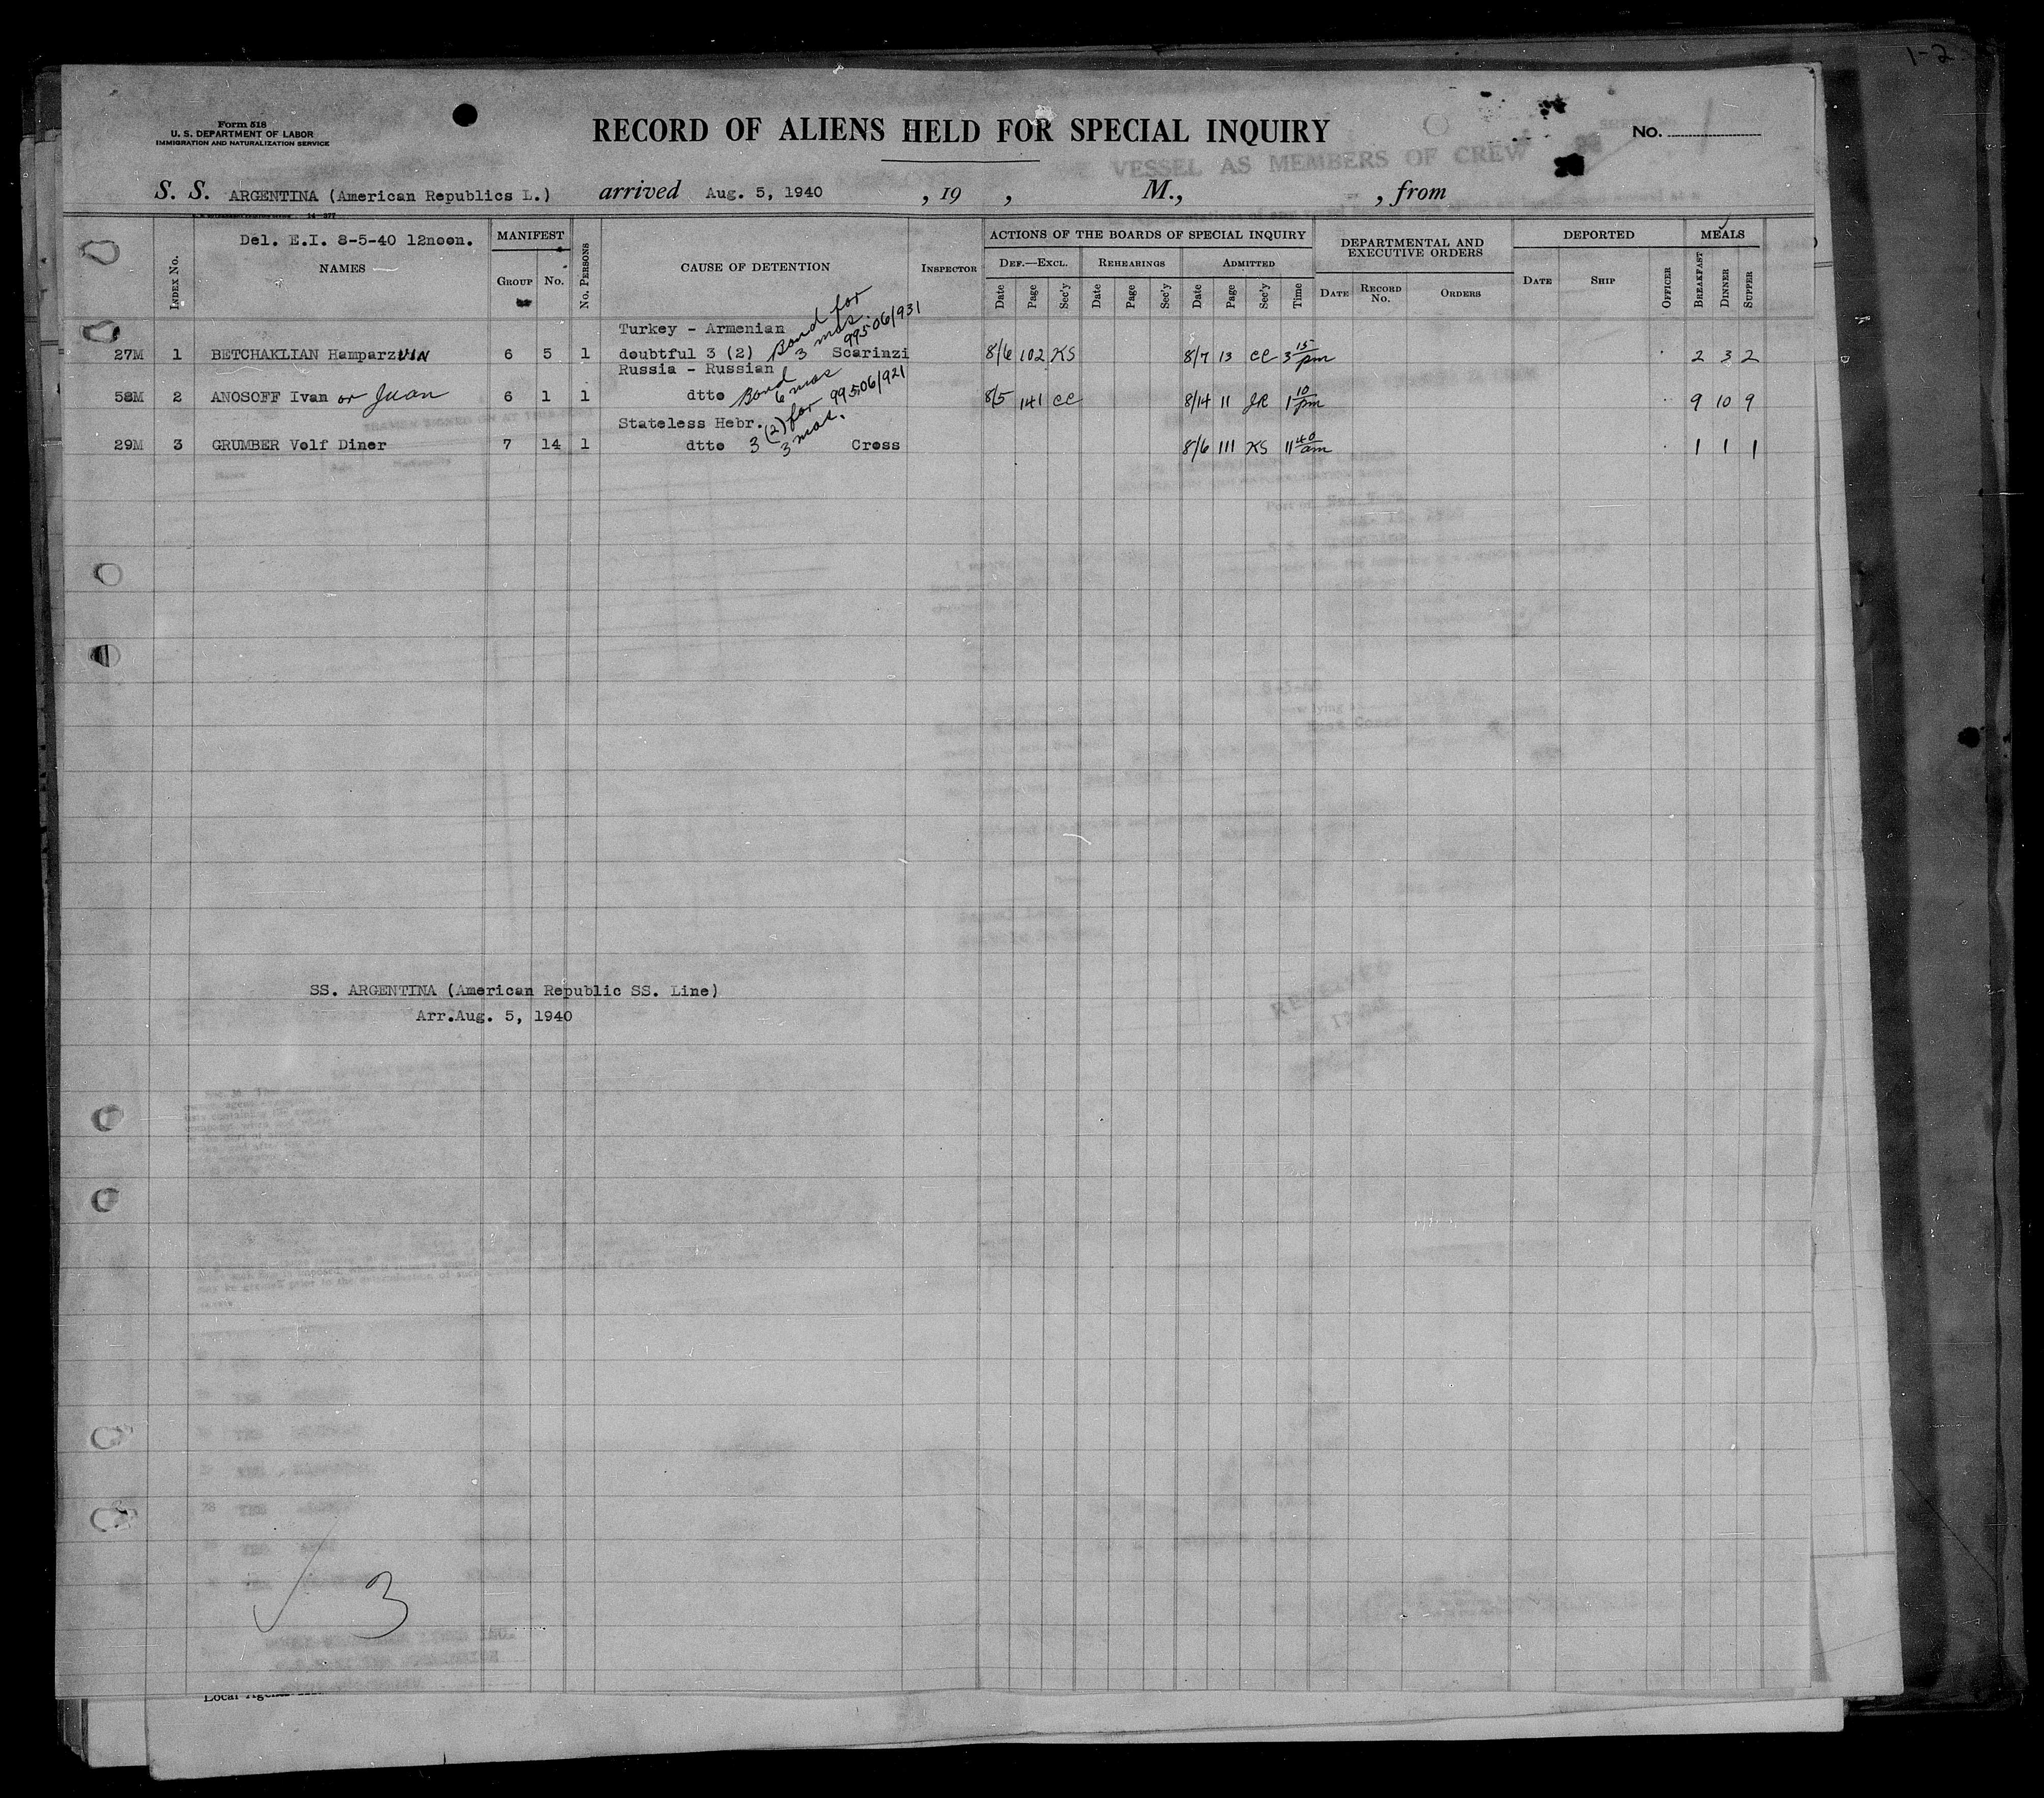 1-2
Form 518
U. S. DEPARTMENT OF LABOR
IMMIGRATION AND NATURALIZATION SERVICE
RECORD OF ALIENS HELD FOR SPECIAL INQUIRY
No.
VESSEL AS MEMBERS OF CREW
S. S. ARGENTINA (American Republics L.) arrived Aug. 5, 1940 , 19 , M., , from
Del. E.I. 8-5-40 12noon.
Index No. NAMES MANIFEST Group No. No. Persons CAUSE OF DETENTION Inspector
ACTIONS OF THE BOARDS OF SPECIAL INQUIRY DEPARTMENTAL AND EXECUTIVE ORDERS DEPORTED MEALS
Def.—Excl. Rehearings Admitted
Date Page Sec'y Date Page Sec'y Date Page Sec'y Time Date Record No. Orders Date Ship Officer Breakfast Dinner Supper
Turkey - Armenian Bond for 3 mos. 99506/931
27M 1 BETCHAKLIAN Hamparzum 6 5 1 doubtful 3 (2) Scarinzi 8/6 102 KS 8/7 13 CC 3 15 pm 2 3 2
Russia - Russian Bond 6 mos 99506/921
58M 2 ANOSOFF Ivan or Juan 6 1 1 dtto 8/5 141 CC 8/14 11 JR 1 10 pm 9 10 9
Stateless Hebr. 3 (2) for 3 mos.
29M 3 GRUMBER Volf Diner 7 14 1 dtto Cross 8/6 111 KS 11 40 am 1 1 1
SS. ARGENTINA (American Republic SS. Line)
Arr.Aug. 5, 1940
3
Local